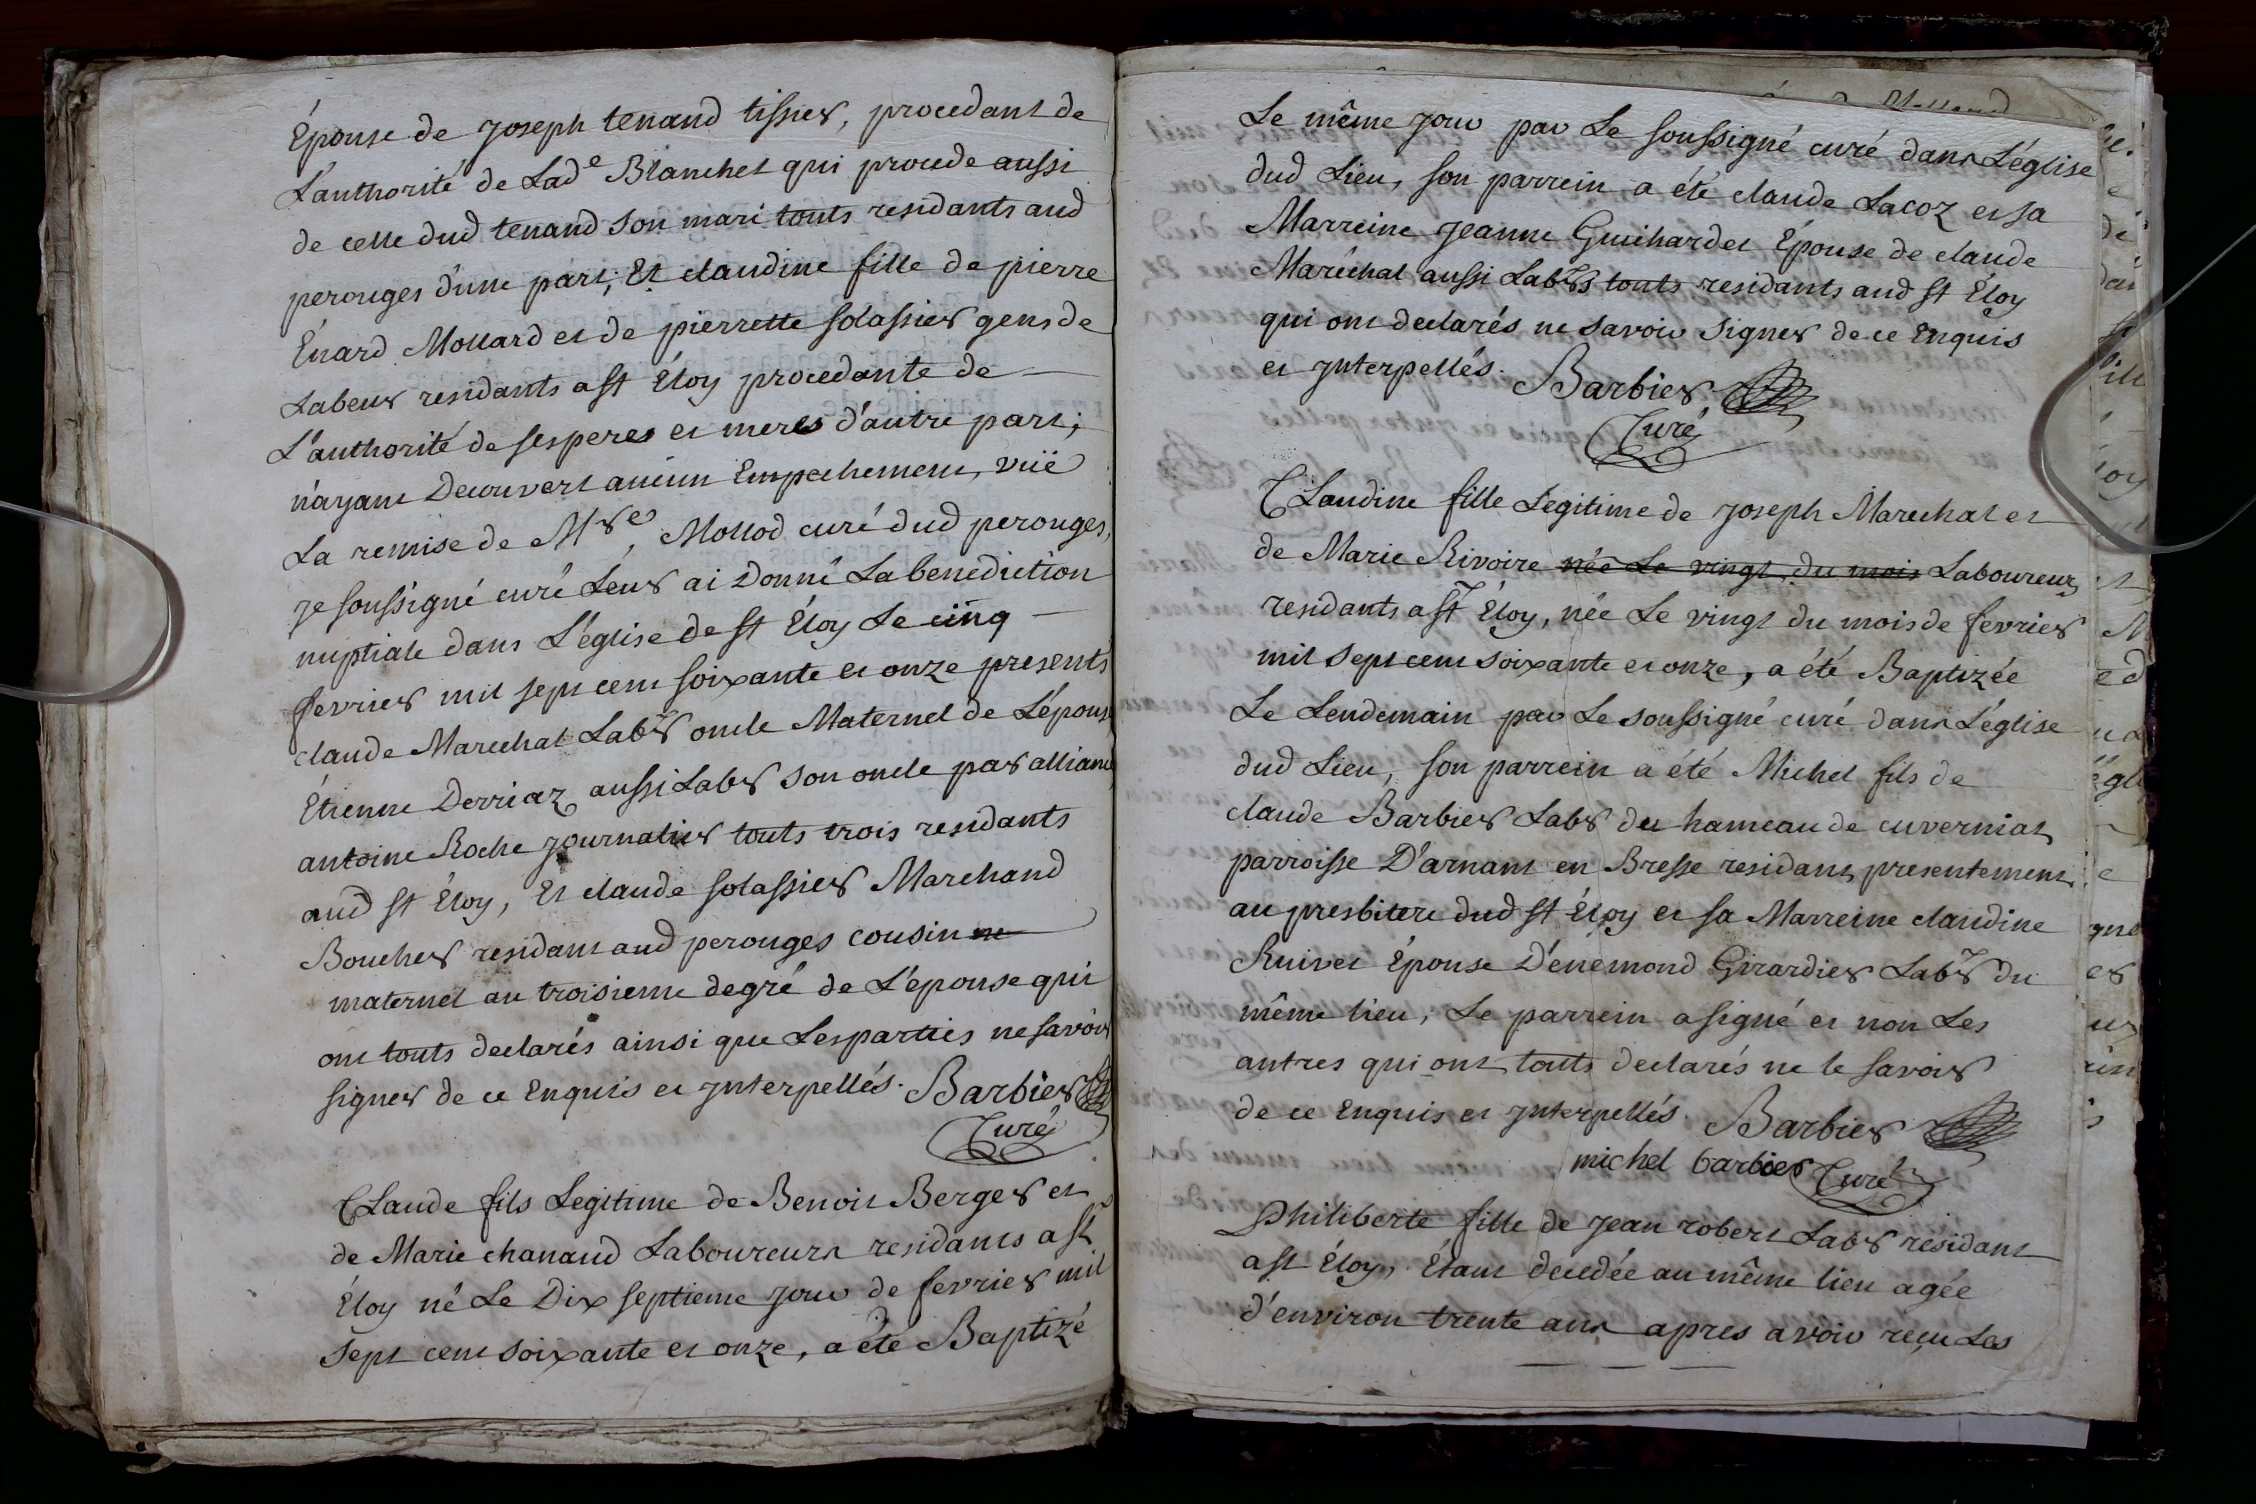 Épouse de Joseph tenand tissier, procedant de
L'authorité de Lad^e Blanchet qui procede aussi
de celle dud tenand son mari touts residants aud
perouges d'une part; Et claudine fille de pierre
Énard Mollard et de pierrette solassier gens de
Labeur residants a st Éloy procedante de
L'authorité de ses peres et meres d'autre part;
n'ayant Decouvert aucun Empechement, vüe
La remise de M^re Mollod curé dud perouges,
je soussigné curé Leur ai Donné La benediction
nuptiale dans L'église de st Éloy Le cinq
fevrier mil sept cent soixante et onze presents
claude Marechal Lab^r oncle Maternel de L'épouse
Étienne Derriaz aussi Labr son oncle par alliance
antoine Roche journalier touts trois residants
aud st Éloy, Et claude solassier Marchand
Boucher residant aud perouges cousin ne
maternel au troisieme degré de L'épouse qui
ont touts declarés ainsi que Les parties ne savoir
signer de ce Enquis et jnterpellés. Barbier
Curé
Claude fils Legitime de Benoit Berger et
de Marie chanaud Laboureurs residants a st
Éloy né Le Dix septieme jour de fevrier mil
sept cent soixante et onze, a été Baptizé
Le même jour par Le soussigné curé dans L'église
dud Lieu, son parrein a été claude Lacoz et sa
Marreine jeanne Guichardet Épouse de claude
Maréchal aussi Lab^rs touts residants aud st Éloy
qui ont declarés ne savoir signer de ce Enquis
et jnterpellés. Barbier
Curé
Claudine fille Legitime de joseph Marechal et
de Marie Rivoire née Le vingt du mois Laboureurs
residants a st Éloy, née Le vingt du mois de fevrier
mil sept cent soixante et onze, a été Baptizée
Le Lendemain par Le soussigné curé dans L'église
dud Lieu, son parrein a été Michel fils de
claude Barbier Labr du hameau de cuverniat
parroisse D'arnant en Bresse residant presentement
au presbitere dud st Éloy et sa Marreine claudine
Ruivet Épouse D'énemond Girardier Lab^r du
même lieu, Le parrein a signé et non Les
autres qui ont touts declarés ne le savoir
de ce Enquis et jnterpellés. Barbier
michel barbier Curé
Philiberte fille de jean robert Labr résidant
a st Éloy, Étant decedée au même lieu agée
d'environ trente ans apres avoir reçu Les